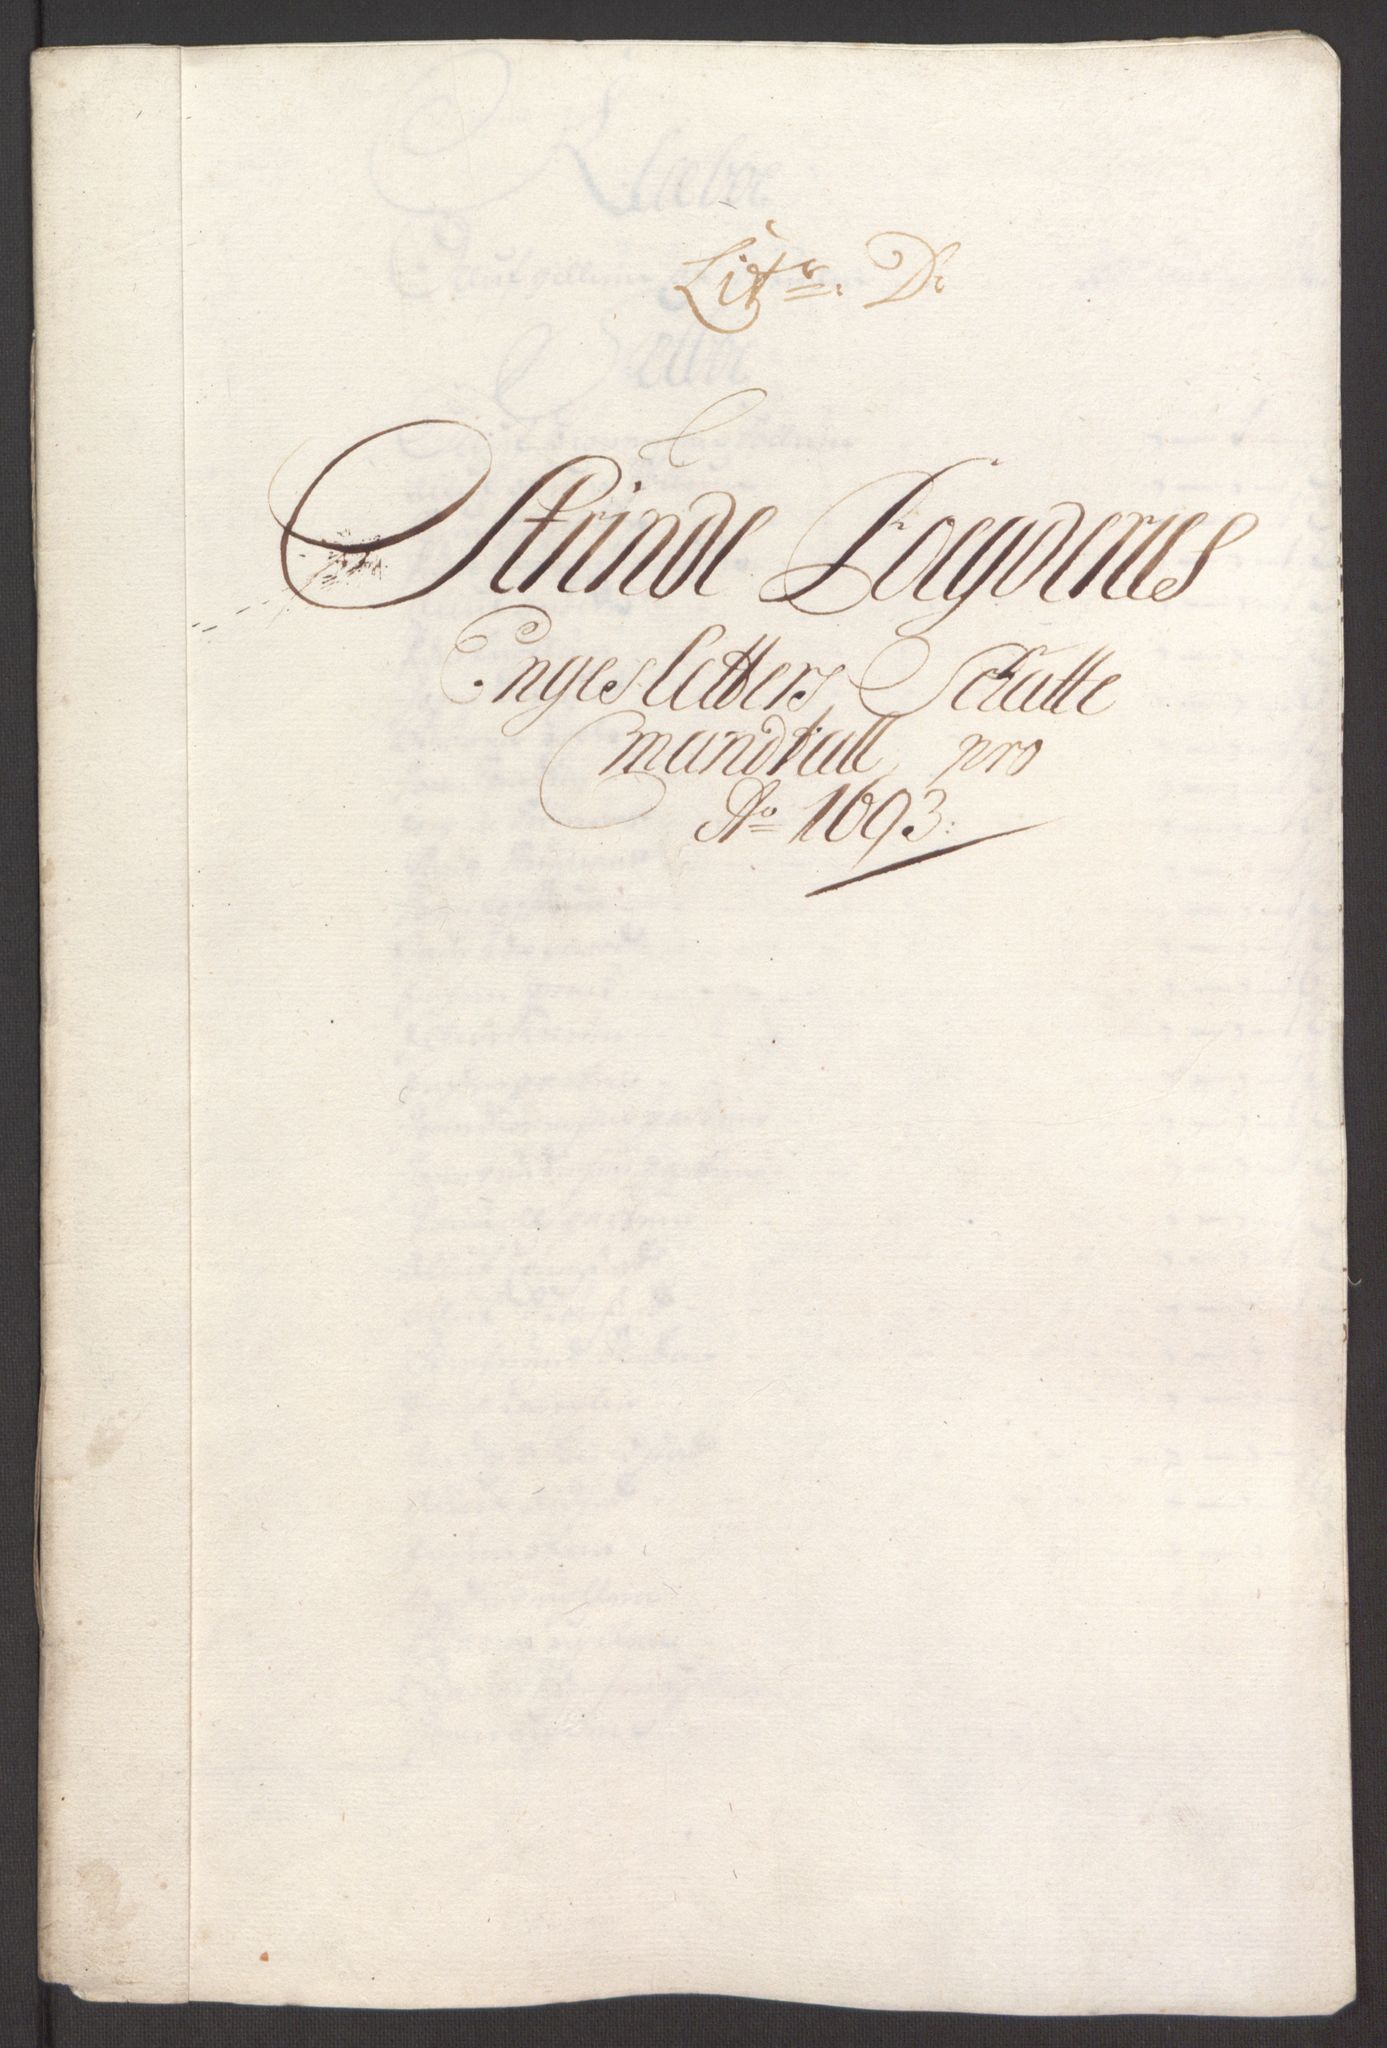 Litr. D.
Strinde Foegderies
Engesletters Schatte
mandtall pro
Ao 1693: